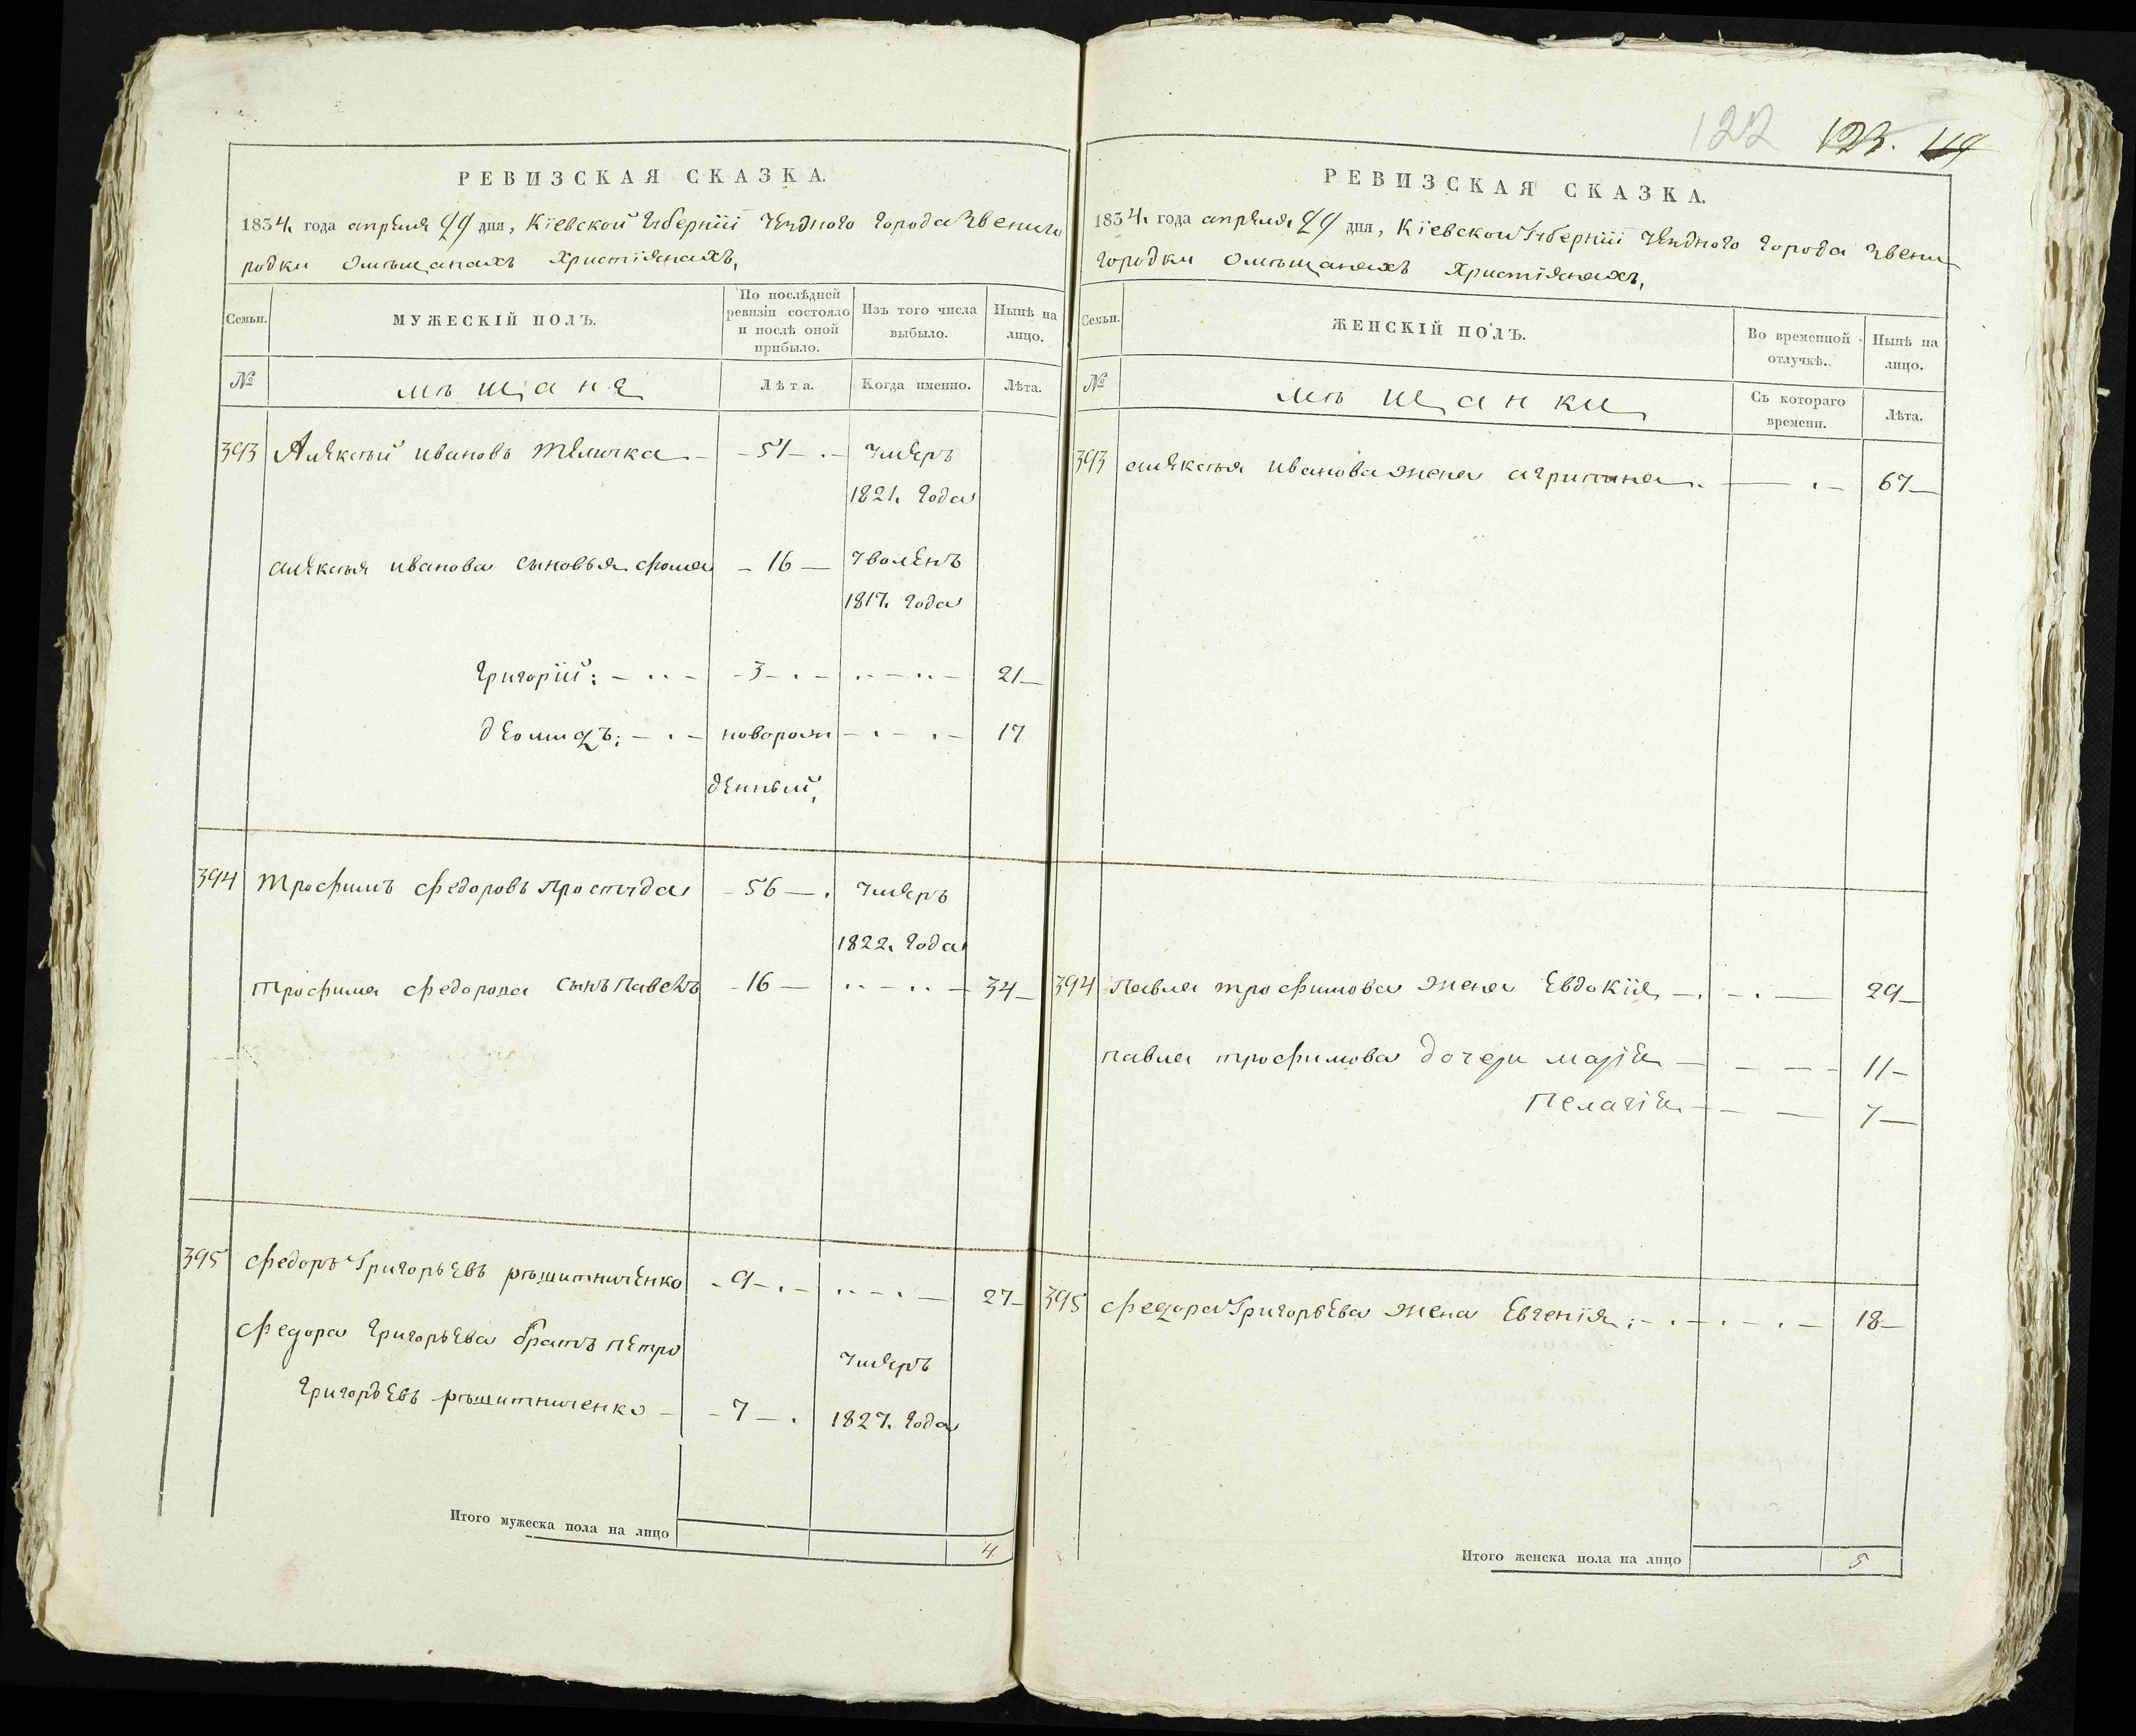 122 123. 119
РЕВИЗСКАЯ СКАЗКА.
1834. года апреля 29 дня, Кіевской Губерніи Уезднаго города Звениго
родки Омѣщанахъ Христіянахъ,
Семьи.
МУЖЕСКІЙ ПОЛЪ.
По послѣдней ревизіи состояло и послѣ оной прибыло.
Изъ того числа выбыло.
Нынѣ на лицо.
№ мѣщаня Лѣта. Когда именно. Лѣта.
393 Алексѣй Ивановъ Теличка - 51 - умеръ
1821. года
алексѣя иванова сыновья фома - 16 - уволенъ
1817. года
григорій: - 3 - 21
деомидъ: - новорож - 17
денный,
394 Трофимъ федоровъ простуда - 56 - умеръ
1822. года
трофима федорова сынъ павелъ - 16 - 34
395 федоръ Григорьевъ рѣшитниченко - 9 - 27
федора григорьева братъ петро
умеръ
григорьевъ рѣшитниченко - 7 - 1827. года
Итого мужеска пола на лицо
4
РЕВИЗСКАЯ СКАЗКА.
1834. года апреля 29 дня, Кіевской Губерніи Уезднаго города Звени
городки Омѣщанахъ Христіянахъ,
Семьи.
ЖЕНСКІЙ ПОЛЪ.
Во временной отлучкѣ.
Нынѣ на лицо.
№ мѣщанки Съ котораго времени. Лѣта.
393 алексѣя иванова жена агрипина. - 67
394 павла трофимова жена Евдокія - 29
павла трофимова дочери марія - 11
Пелагія - 7
395 федора Григорьева жена Евгенія: - 18
Итого женска пола на лицо 5